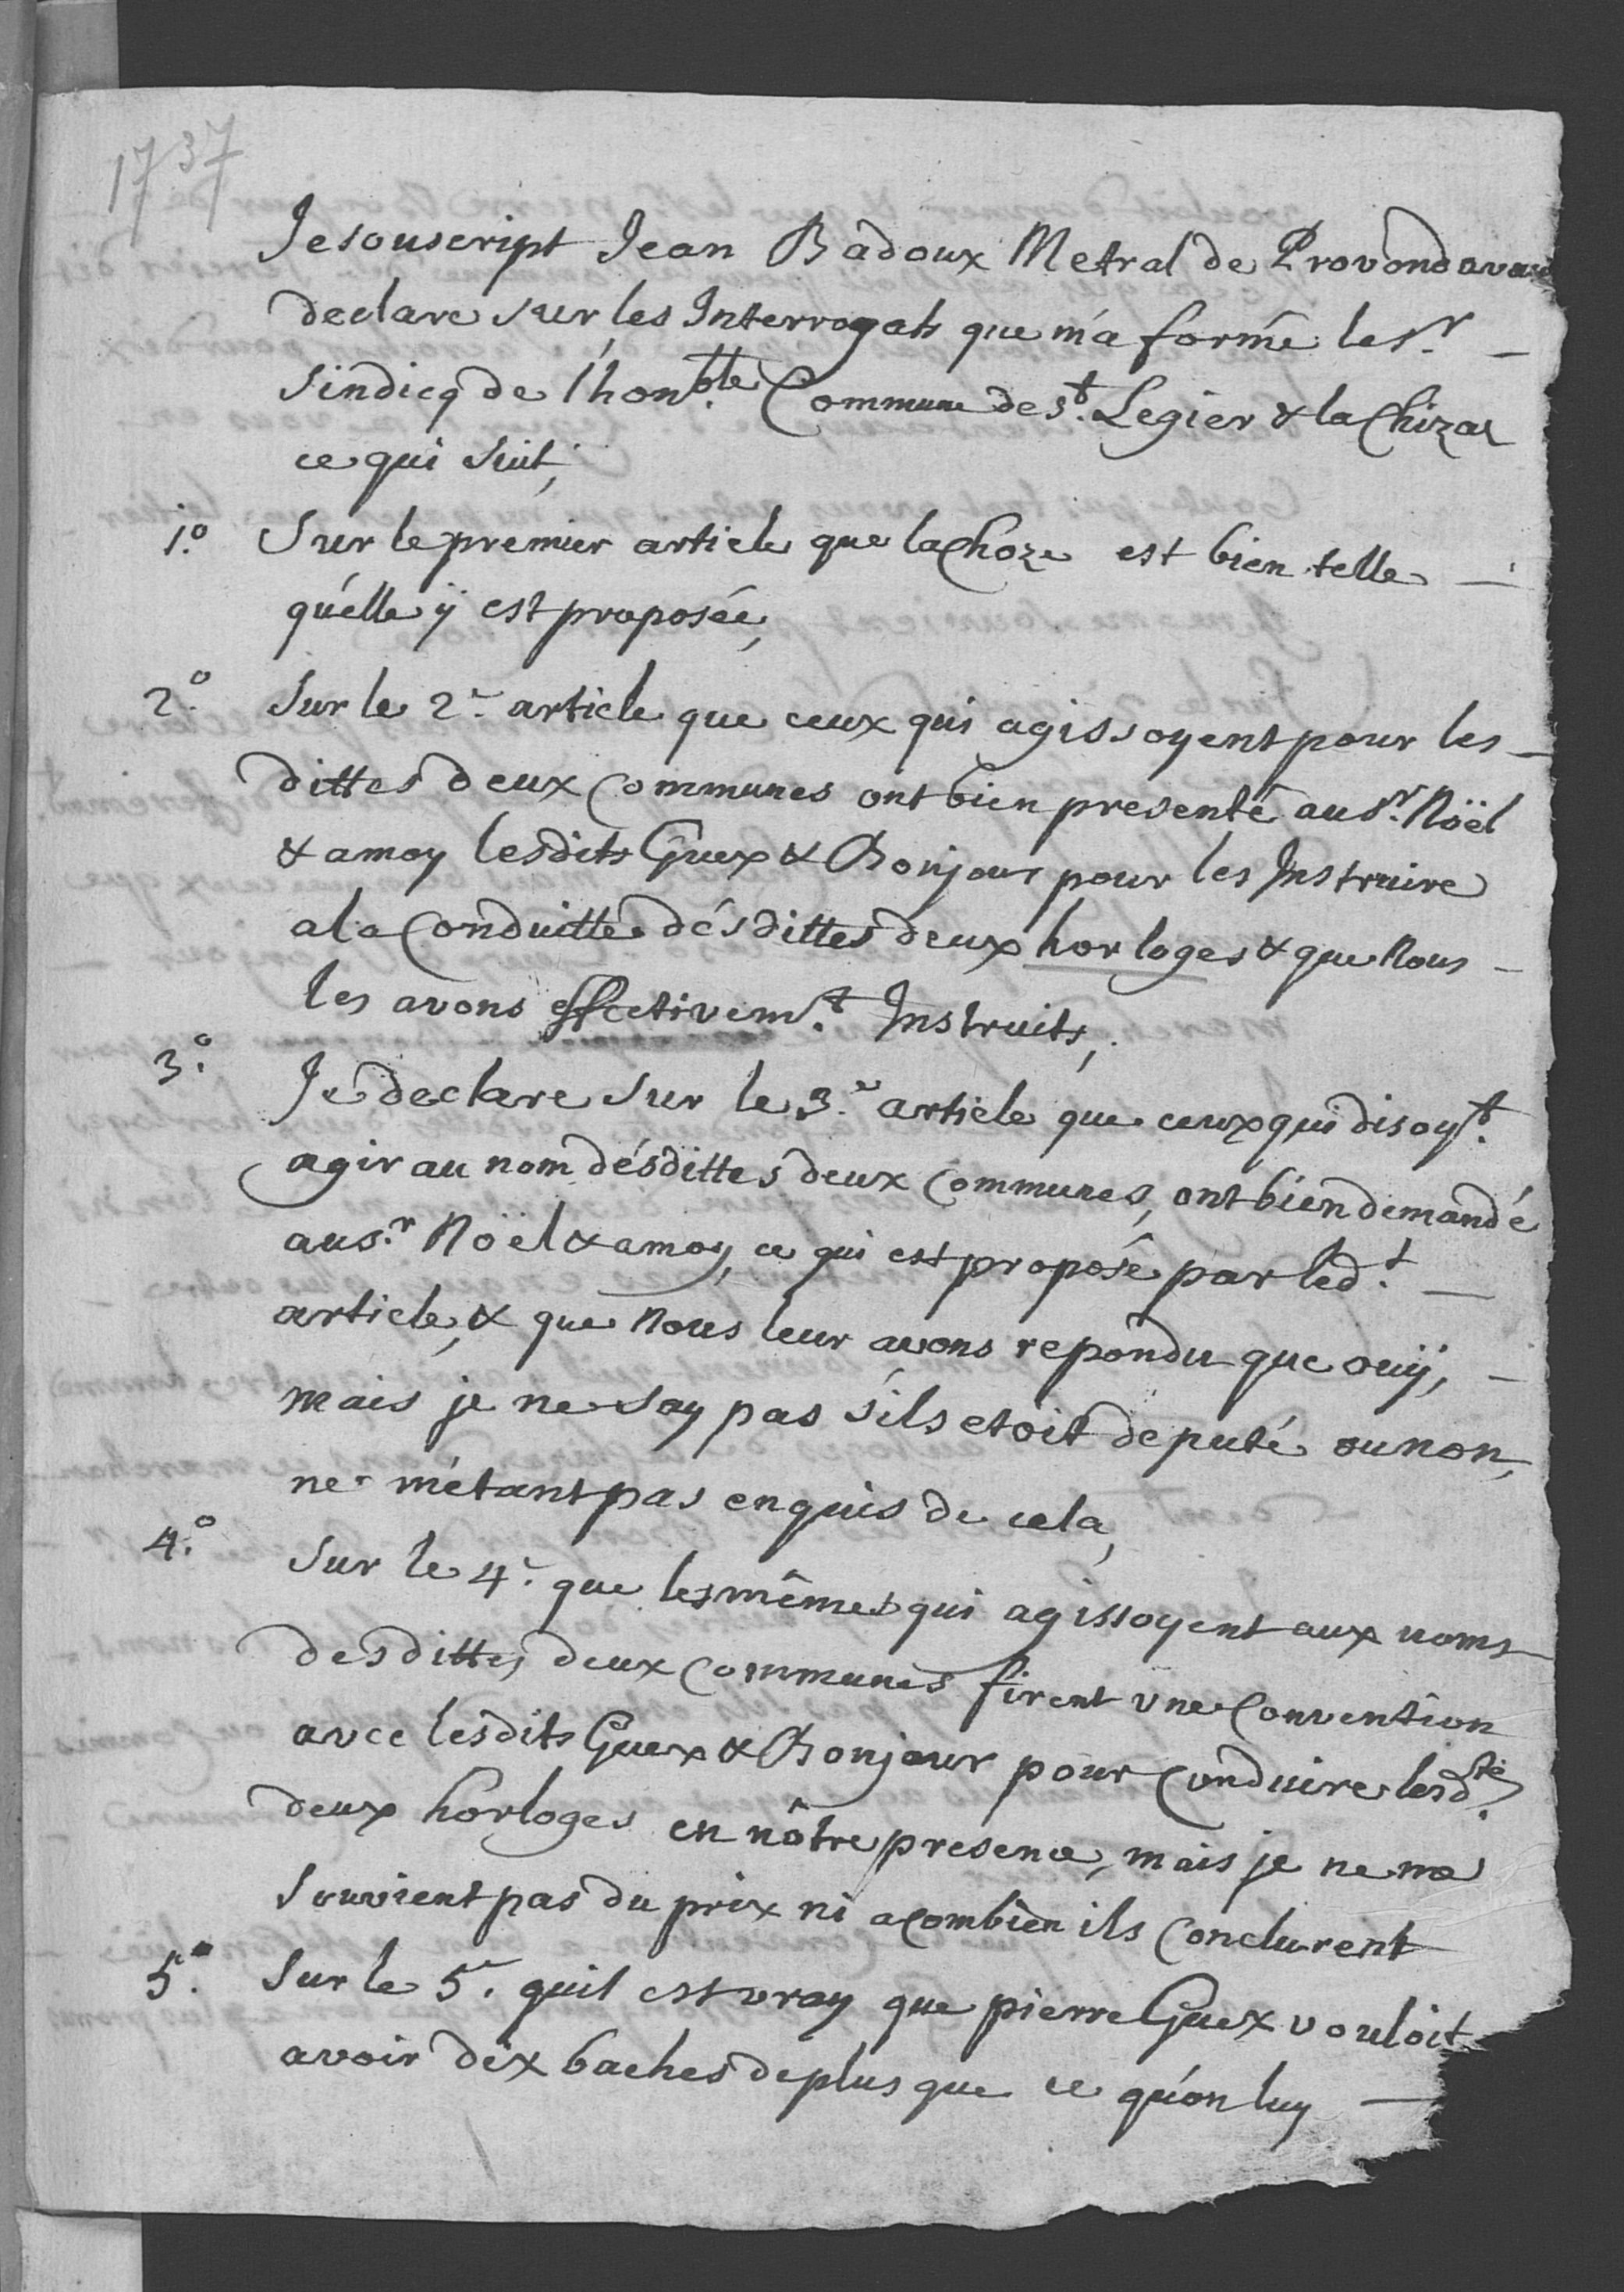 1737
Je souscript Jean Badoux Metral de Provondavaux
declare sur les Interrogats que m'a formé le Sr. –
Sindicq de l'honble. Commune de St. Legier & la Chiza
ce qui suit;
1.o Sur le premier article que la Choze est bien telle –
qu'elle ÿ est proposée,
2.o Sur le 2e. article que ceux qui agissoyent pour les –
dittes deux Communes ont bien presenté au Sr. Noël
& a moy lesdits Guex & Bonjour pour les Instruire
a la Conduitte désdittes deux horloges & que Nous –
les avons effectivemt. Instruits,
3.o Je declare sur le 3.e article que ceux qui disoyt.
agir au nom désdittes deux Communes, ont bien demandé
au Sr. Noël & a moy, ce qui est proposé par led.t –
article, & que Nous leur avons repondu que ouÿ, –
mais je ne say pas s'ils etoit deputé ou non,
ne m'étant pas enquis de cela,
4.o Sur le 4e. que les mêmes qui agissoyent aux noms
desdittes deux Communes firent une Convention
avec lesdits Guex & Bonjour pour Conduire lesd.tes
deux horloges en nôtre presence, mais je ne me
souvient pas du prix ni a combien ils Conclurent
5.o Sur le 5e. quil est vray que pierre Guex vouloit
avoir dix baches de plus que ce qu'on luy –